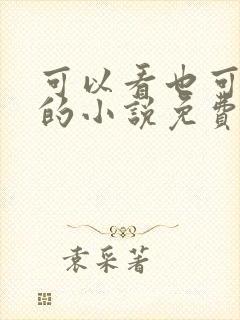 可以看也可
的小説免費
袁采著